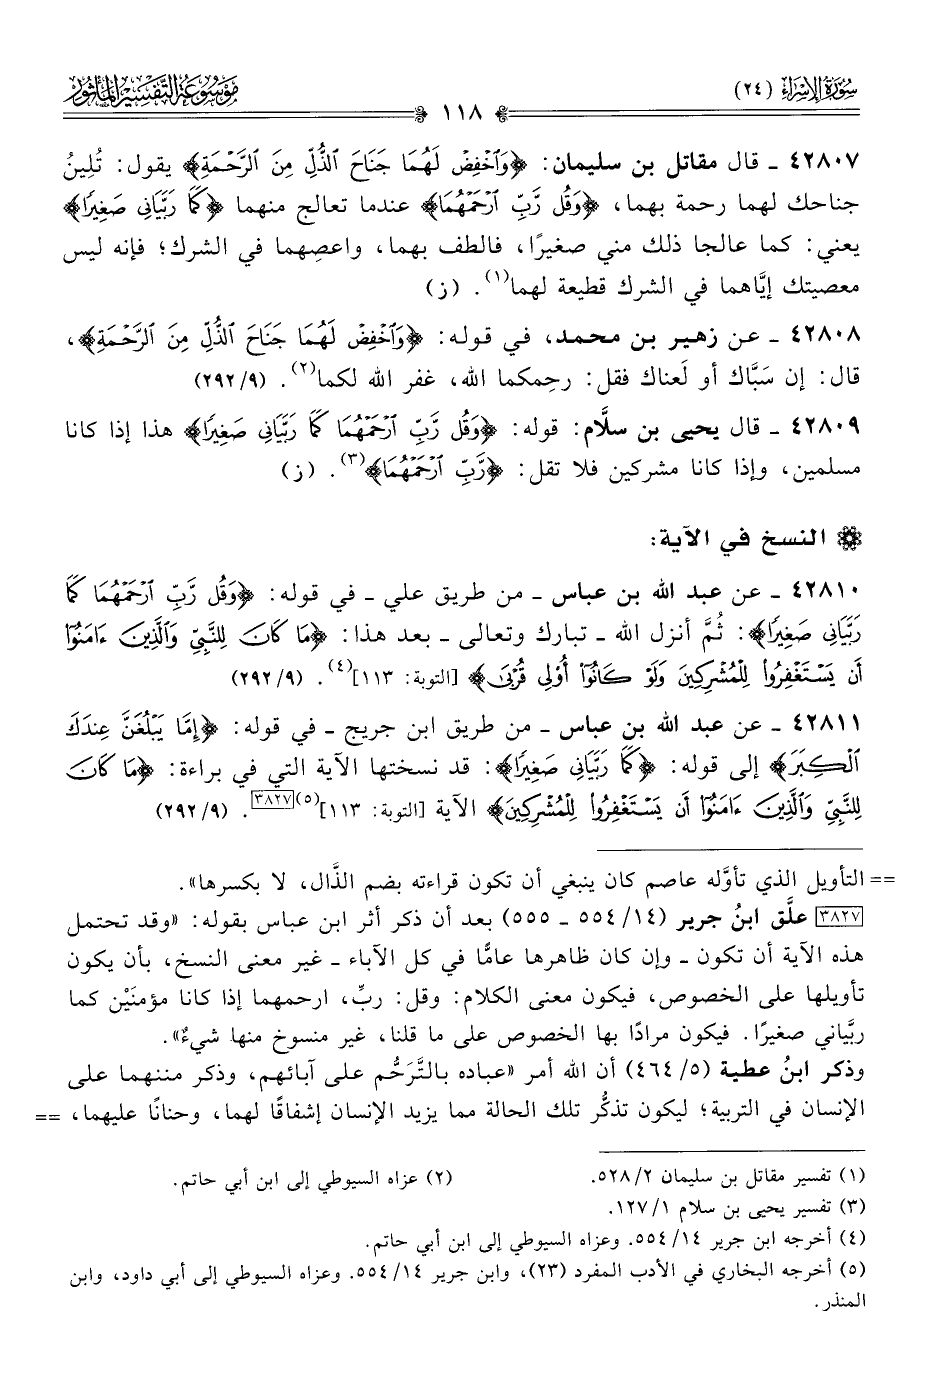 سُورَةُ الإِسْرَاءِ (٢٤)
١١٨
مَوْسُوعَةُ التَّفْسِيرِ المَأْثُورِ
٤٢٨٠٧ ـ قال مقاتل بن سليمان: ﴿وَٱخْفِضْ لَهُمَا جَنَاحَ ٱلذُّلِّ مِنَ ٱلرَّحْمَةِ﴾ يقول: تُلِينُ
جناحك لهما رحمة بهما، ﴿وَقُل رَّبِّ ٱرْحَمْهُمَا﴾ عندما تعالج منهما ﴿كَمَا رَبَّيَانِي صَغِيرًا﴾
يعني: كما عالجا ذلك مني صغيرًا، فالطف بهما، واعصِهما في الشرك؛ فإنه ليس
معصيتك إيَّاهما في الشرك قطيعة لهما(١). (ز)
٤٢٨٠٨ ـ عن زهير بن محمد، في قوله: ﴿وَٱخْفِضْ لَهُمَا جَنَاحَ ٱلذُّلِّ مِنَ ٱلرَّحْمَةِ﴾،
قال: إن سَبَّاك أو لَعناك فقل: رحِمكما الله، غفر الله لكما(٢). (٢٩٢/٩)
٤٢٨٠٩ ـ قال يحيى بن سلَّام: قوله: ﴿وَقُل رَّبِّ ٱرْحَمْهُمَا كَمَا رَبَّيَانِي صَغِيرًا﴾ هذا إذا كانا
مسلمين، وإذا كانا مشركين فلا تقل: ﴿رَّبِّ ٱرْحَمْهُمَا﴾(٣). (ز)
النسخ في الآية:
٤٢٨١٠ ـ عن عبد الله بن عباس ـ من طريق علي ـ في قوله: ﴿وَقُل رَّبِّ ٱرْحَمْهُمَا كَمَا
رَبَّيَانِي صَغِيرًا﴾: ثُمَّ أنزل الله ـ تبارك وتعالى ـ بعد هذا: ﴿مَا كَانَ لِلنَّبِيِّ وَٱلَّذِينَ ءَامَنُوٓا۟
أَن يَسْتَغْفِرُوا۟ لِلْمُشْرِكِينَ وَلَوْ كَانُوٓا۟ أُو۟لِي قُرْبَىٰ﴾ [التوبة: ١١٣](٤). (٢٩٢/٩)
٤٢٨١١ ـ عن عبد الله بن عباس ـ من طريق ابن جريج ـ في قوله: ﴿إِمَّا يَبْلُغَنَّ عِندَكَ
ٱلْكِبَرَ﴾ إلى قوله: ﴿كَمَا رَبَّيَانِي صَغِيرًا﴾: قد نسختها الآية التي في براءة: ﴿مَا كَانَ
لِلنَّبِيِّ وَٱلَّذِينَ ءَامَنُوٓا۟ أَن يَسْتَغْفِرُوا۟ لِلْمُشْرِكِينَ﴾ الآية [التوبة: ١١٣](٥)[٣٨٢٧]. (٢٩٢/٩)
== التأويل الذي تأوَّله عاصم كان ينبغي أن تكون قراءته بضم الذَّال، لا بكسرها».
[٣٨٢٧] علَّق ابنُ جرير (١٤/ ٥٥٤ ـ ٥٥٥) بعد أن ذكر أثر ابن عباس بقوله: «وقد تحتمل
هذه الآية أن تكون ـ وإن كان ظاهرها عامًّا في كل الآباء ـ غير معنى النسخ، بأن يكون
تأويلها على الخصوص، فيكون معنى الكلام: وقل: ربِّ، ارحمهما إذا كانا مؤمنَيْن كما
ربَّياني صغيرًا. فيكون مرادًا بها الخصوص على ما قلنا، غير منسوخ منها شيءٌ».
وذكر ابنُ عطية (٥/ ٤٦٤) أن الله أمر «عباده بالتَّرَحُّم على آبائهم، وذكر مننهما على
الإنسان في التربية؛ ليكون تذكُّر تلك الحالة مما يزيد الإنسان إشفاقًا لهما، وحنانًا عليهما، ==
(١) تفسير مقاتل بن سليمان ٥٢٨/٢. (٢) عزاه السيوطي إلى ابن أبي حاتم.
(٣) تفسير يحيى بن سلام ١٢٧/١.
(٤) أخرجه ابن جرير ١٤/ ٥٥٤. وعزاه السيوطي إلى ابن أبي حاتم.
(٥) أخرجه البخاري في الأدب المفرد (٢٣)، وابن جرير ١٤/ ٥٥٤. وعزاه السيوطي إلى أبي داود، وابن
المنذر.